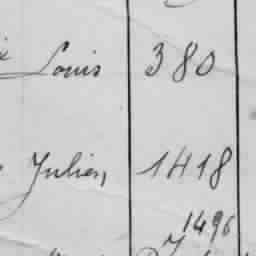 Louis 380
Julien, 1418
1496